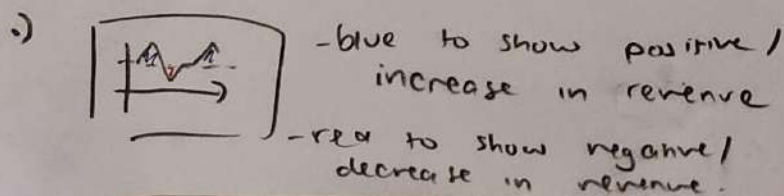 .) -blue to show positive/
increase in revenue
-red to show negative/
decrease in revenue.